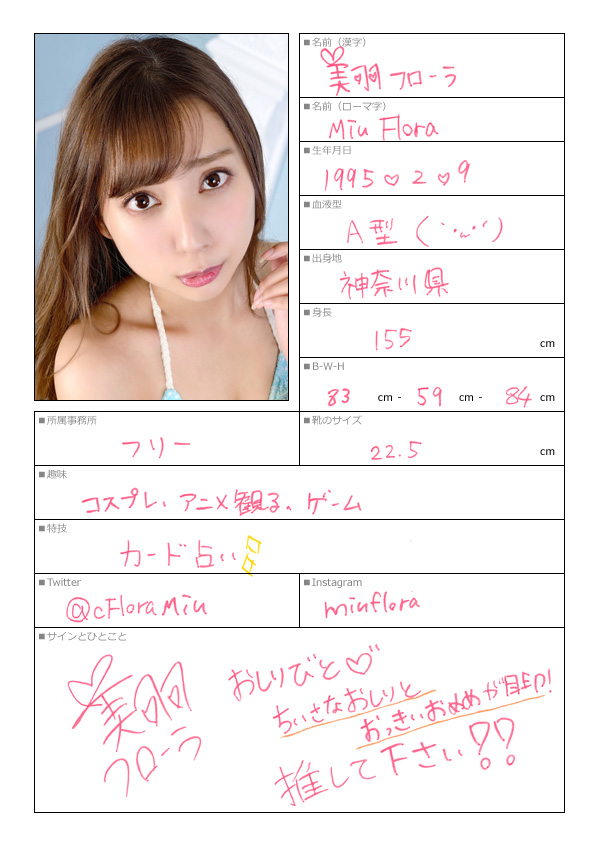 ■名前（漢字）
美羽フローラ
■名前（ローマ字）
Miu Flora
■生年月日
1995♡2♡9
■血液型
A型（｀･ω･´）
■出身地
神奈川県
■身長
155 cm
■B-W-H
83 cm - 59 cm - 84 cm
■所属事務所
フリー
■靴のサイズ
22.5 cm
■趣味
コスプレ、アニメ観る、ゲーム
■特技
カード占い
■Twitter
@cFloraMiu
■Instagram
miuflora
■サインとひとこと
美羽
フローラ
おしりびと♡
ちいさなおしりと
おっきいおめめが目印!
推して下さい!?